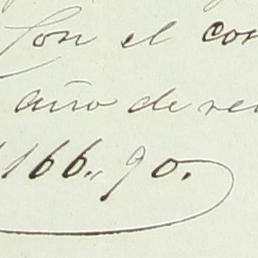 Con el con
año de re
166.. 90.